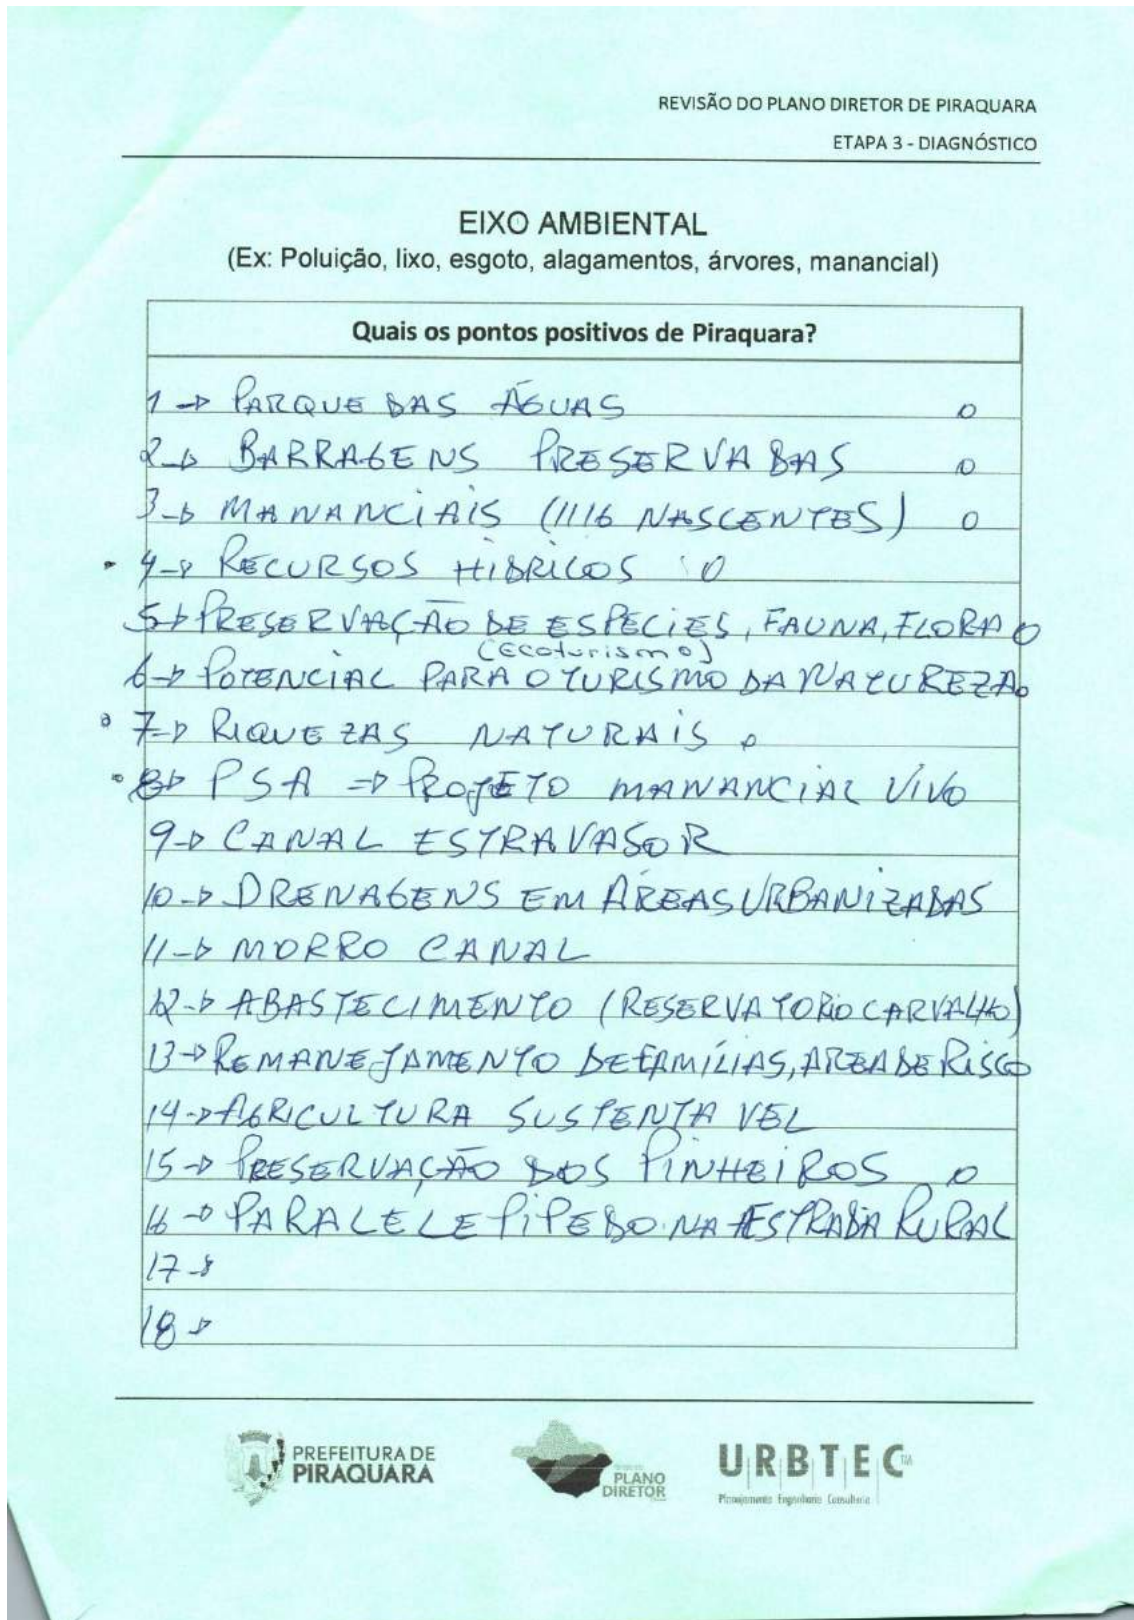 REVISÃO DO PLANO DIRETOR DE PIRAQUARA
ETAPA 3 - DIAGNÓSTICO
EIXO AMBIENTAL
(Ex: Poluição, lixo, esgoto, alagamentos, árvores, manancial)
Quais os pontos positivos de Piraquara?
1 → PARQUE DAS ÁGUAS o
2 → BARRAGENS PRESERVADAS o
3 → MANANCIAIS (1116 NASCENTES) o
• 4 → RECURSOS HIDRICOS o
5 → PRESERVAÇÃO DE ESPÉCIES, FAUNA, FLORA o
(Ecoturismo)
6 → POTENCIAL PARA O TURISMO DA NATUREZA o
• 7 → RIQUEZAS NATURAIS o
• 8 → PSA ⇒ PROJETO MANANCIAL VIVO
9 → CANAL ESTRAVASOR
10 → DRENAGENS EM ÁREAS URBANIZADAS
11 → MORRO CANAL
12 → ABASTECIMENTO (RESERVATORIO CARVALHO)
13 → REMANEJAMENTO DE FAMÍLIAS, AREA DE RISCO
14 → AGRICULTURA SUSTENTAVEL
15 → PRESERVAÇÃO DOS PINHEIROS o
16 → PARALELEPIPEDO NA ESTRADA RURAL
17 →
18 →
PREFEITURA DE
PIRAQUARA
PLANO
DIRETOR
URBTEC™
Planejamento Engenharia Consultoria